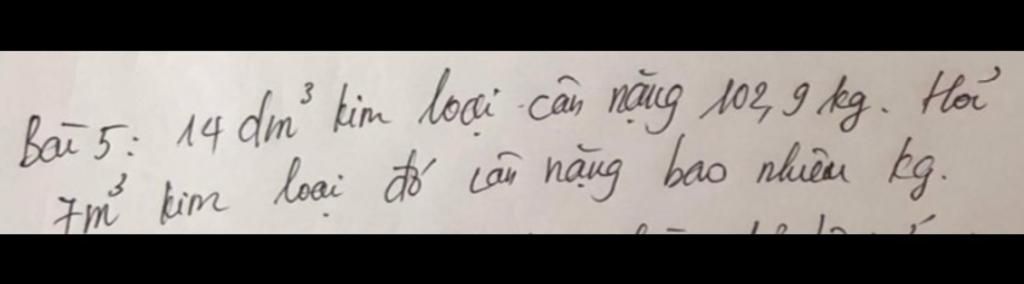 Bài 5: 14 dm³ kim loại cân nặng 102,9 kg. Hỏi
7m³ kim loại đó cân nặng bao nhiêu kg.